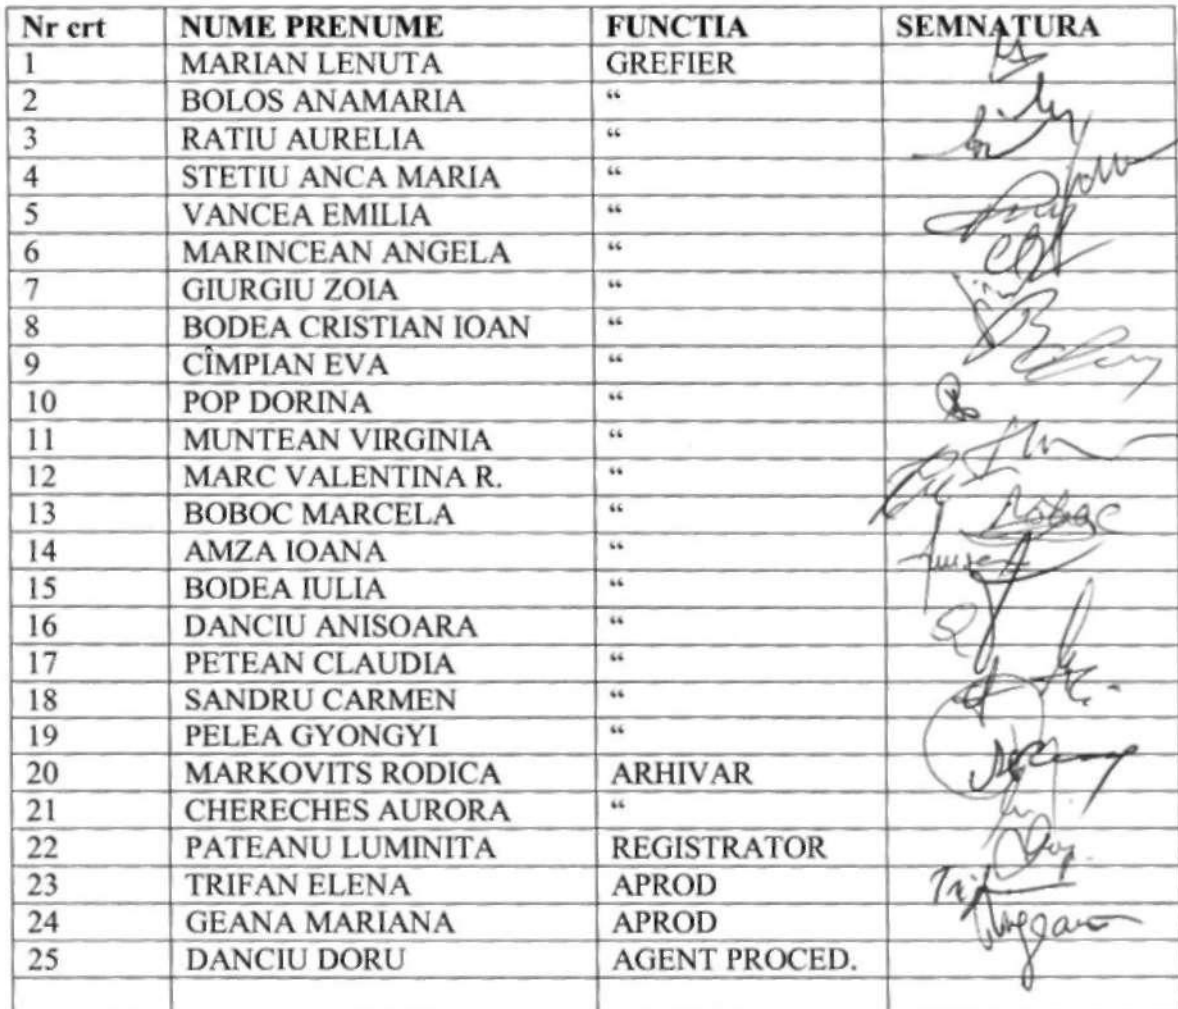 Nr crt NUME PRENUME FUNCTIA SEMNATURA
1 MARIAN LENUTA GREFIER
2 BOLOS ANAMARIA “
3 RATIU AURELIA “
4 STETIU ANCA MARIA “
5 VANCEA EMILIA “
6 MARINCEAN ANGELA “
7 GIURGIU ZOIA “
8 BODEA CRISTIAN IOAN “
9 CÎMPIAN EVA “
10 POP DORINA “
11 MUNTEAN VIRGINIA “
12 MARC VALENTINA R. “
13 BOBOC MARCELA “ Boboc
14 AMZA IOANA “
15 BODEA IULIA “
16 DANCIU ANISOARA “
17 PETEAN CLAUDIA “
18 SANDRU CARMEN “
19 PELEA GYONGYI “
20 MARKOVITS RODICA ARHIVAR
21 CHERECHES AURORA “
22 PATEANU LUMINITA REGISTRATOR
23 TRIFAN ELENA APROD
24 GEANA MARIANA APROD
25 DANCIU DORU AGENT PROCED.